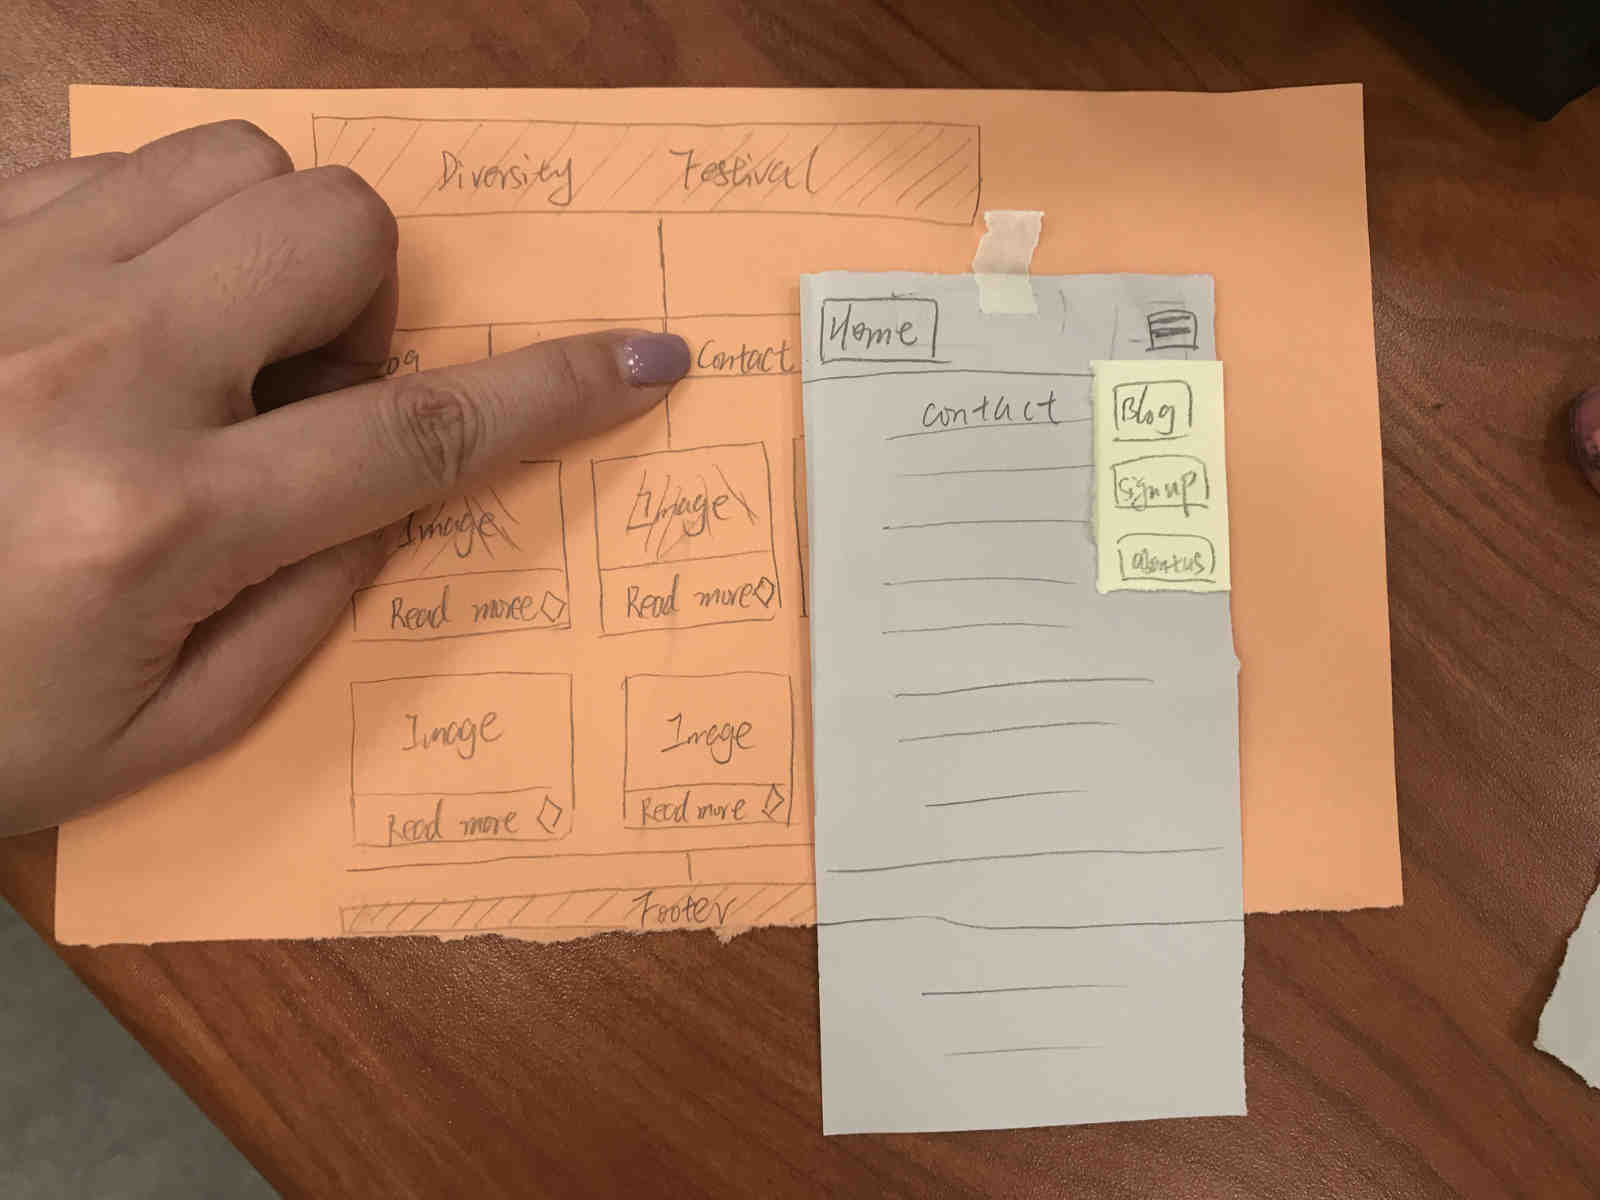 Diversity Festival
og
Contact
Image
Read more
Image
Read more
Image
Read more
Image
Read more
Footer
Home
Contact
Blog
Sign up
About us